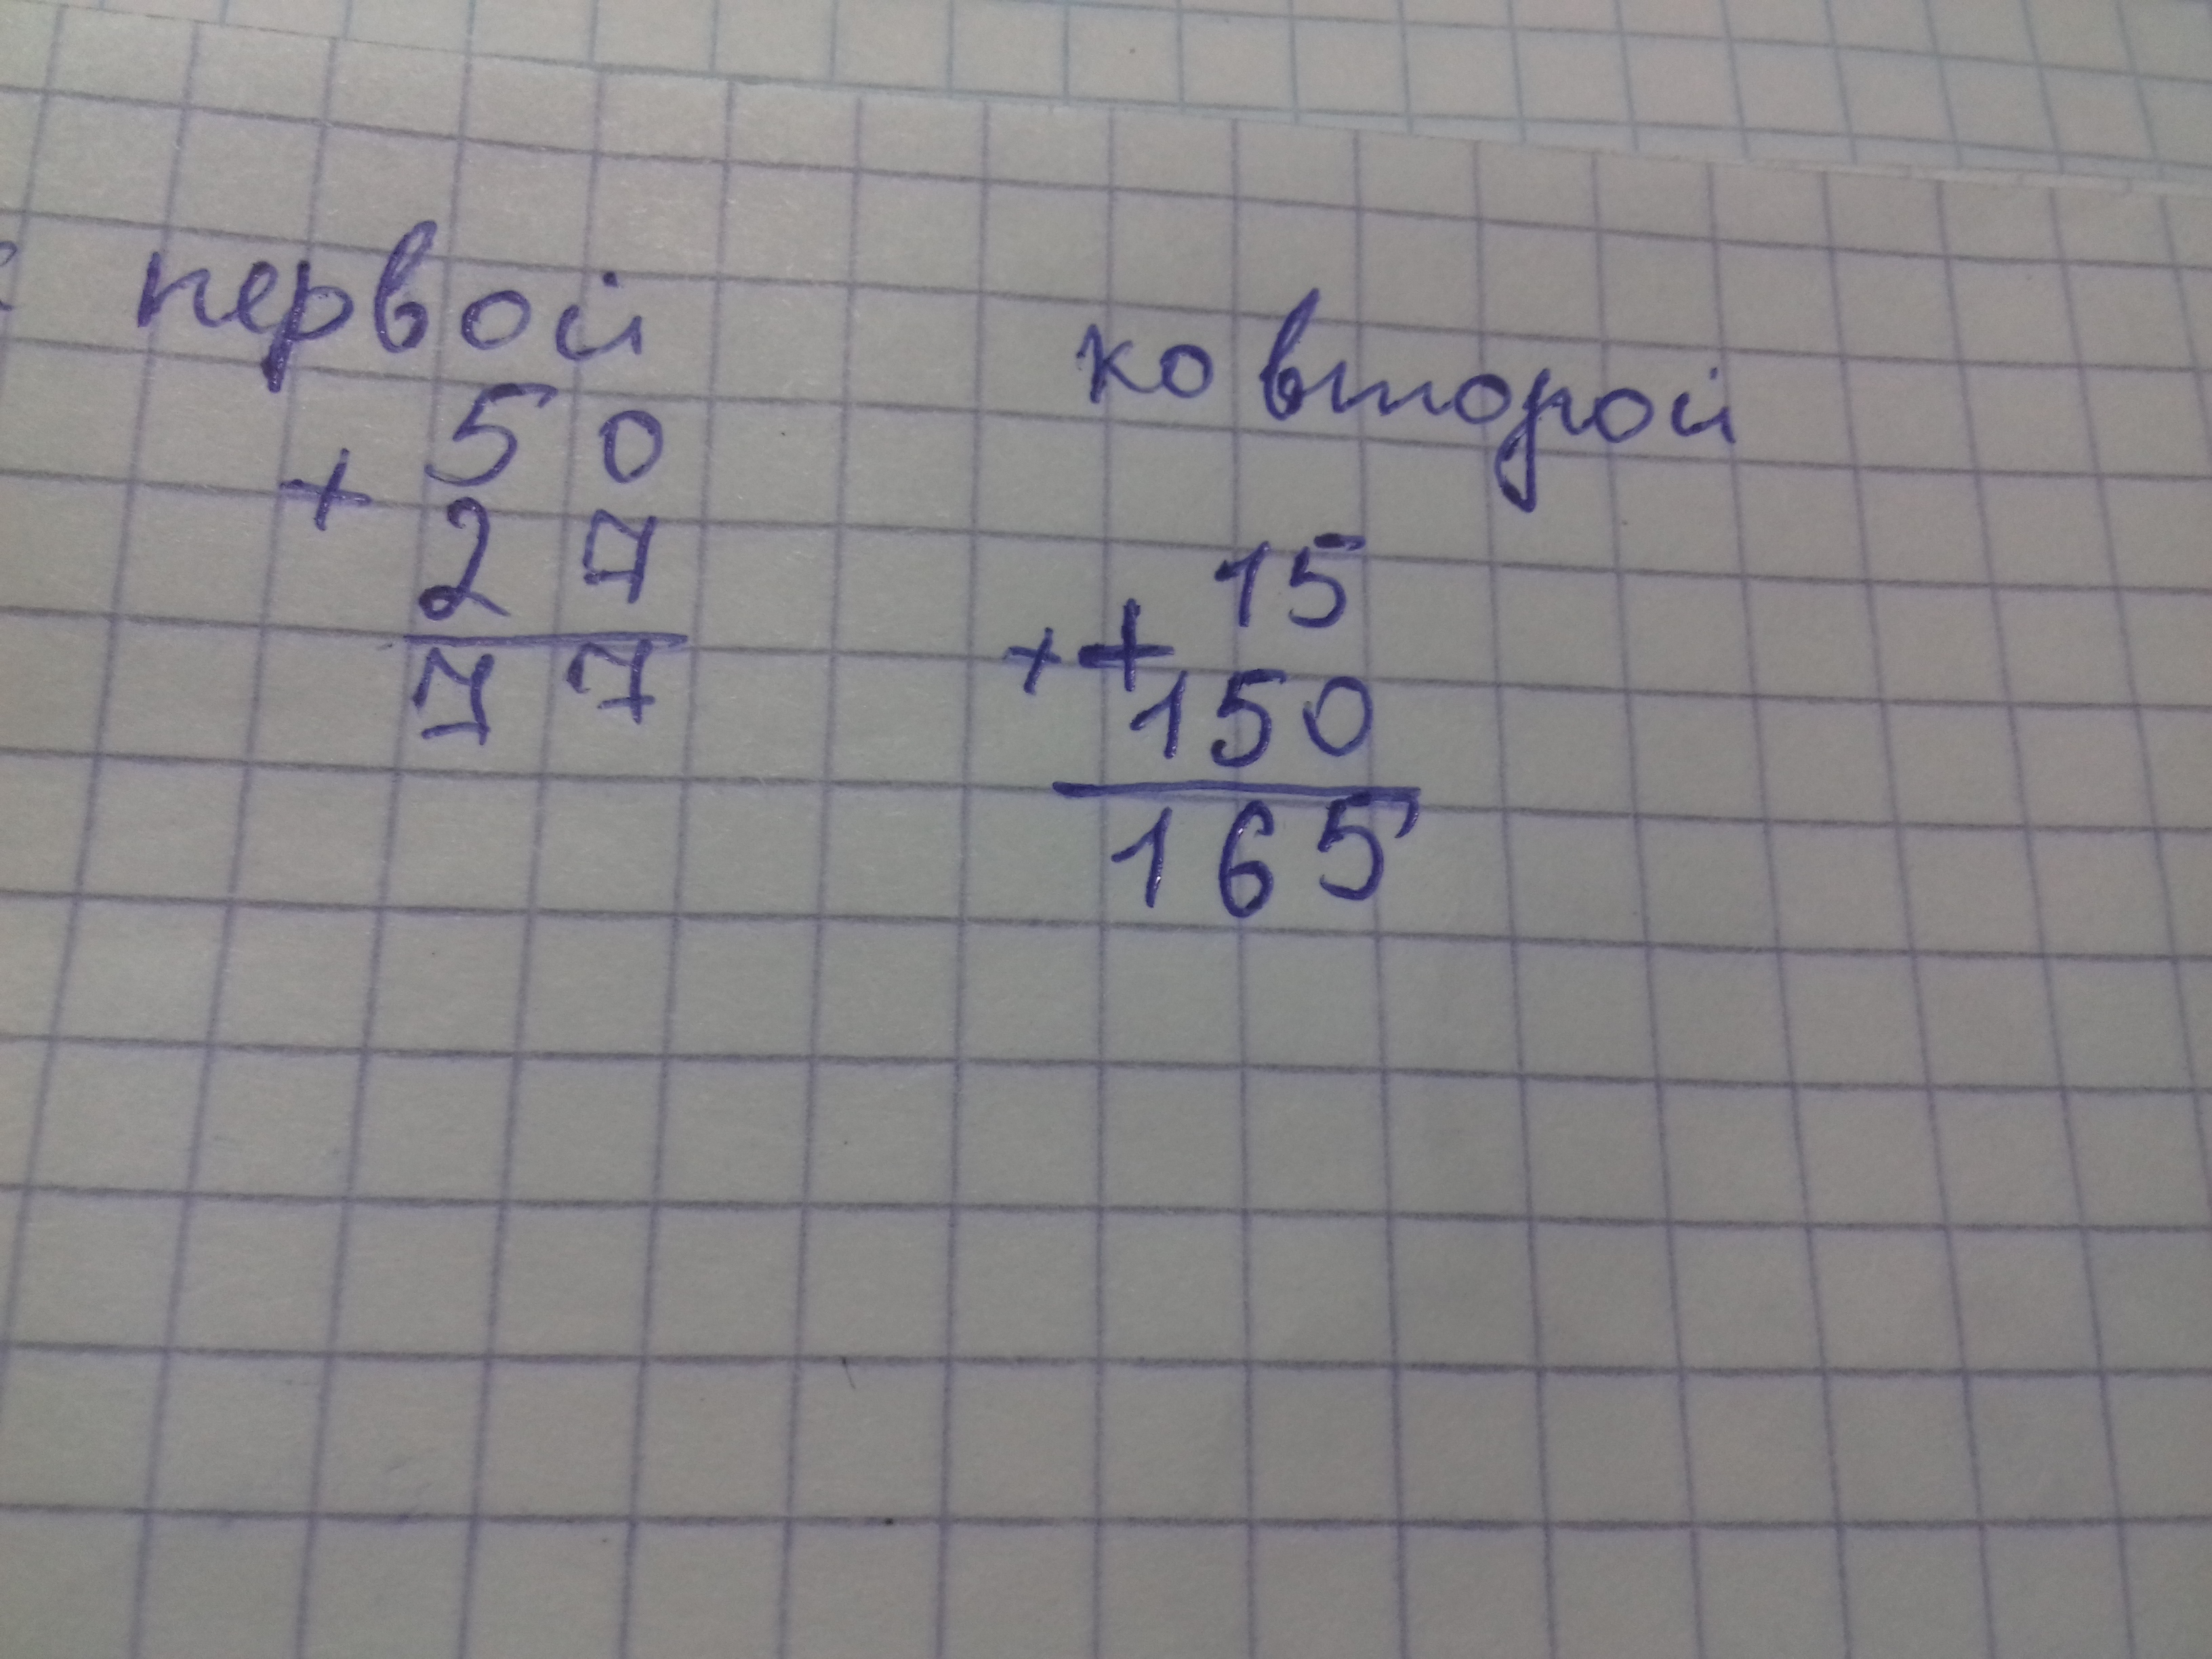 к первой
50
+
27
77
ко второй
15
+ +
150
165